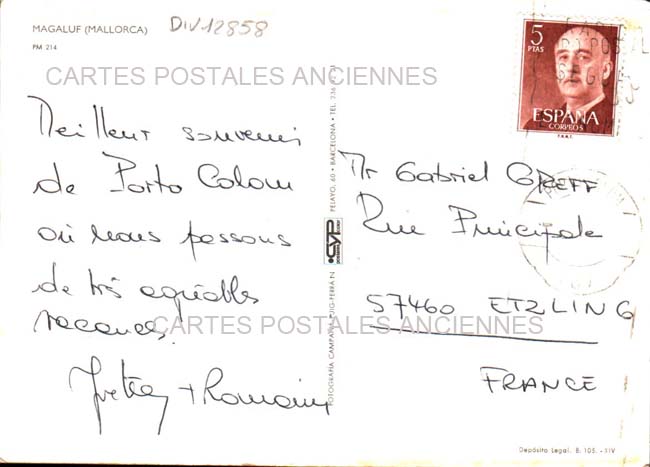 MAGALUF (MALLORCA)
PM 214
DIV12858
5
PTAS
ESPAÑA
CORREOS
F.N.M.T.
CARTES POSTALES ANCIENNES
Meilleur souvenir
de Porto Colom
où nous passons
de très agréables
vacances.
+ Romain
PELAYO, 60 • BARCELONA • TEL.
CYP
FOTOGRAFIA CAMPAÑA PUIG-FERRAN
Mr Gabriel GREFF
Rue Principale
57460 ETZLING
FRANCE
CARTES POSTALES ANCIENNES
Depósito Legal. B. 105. - XIV